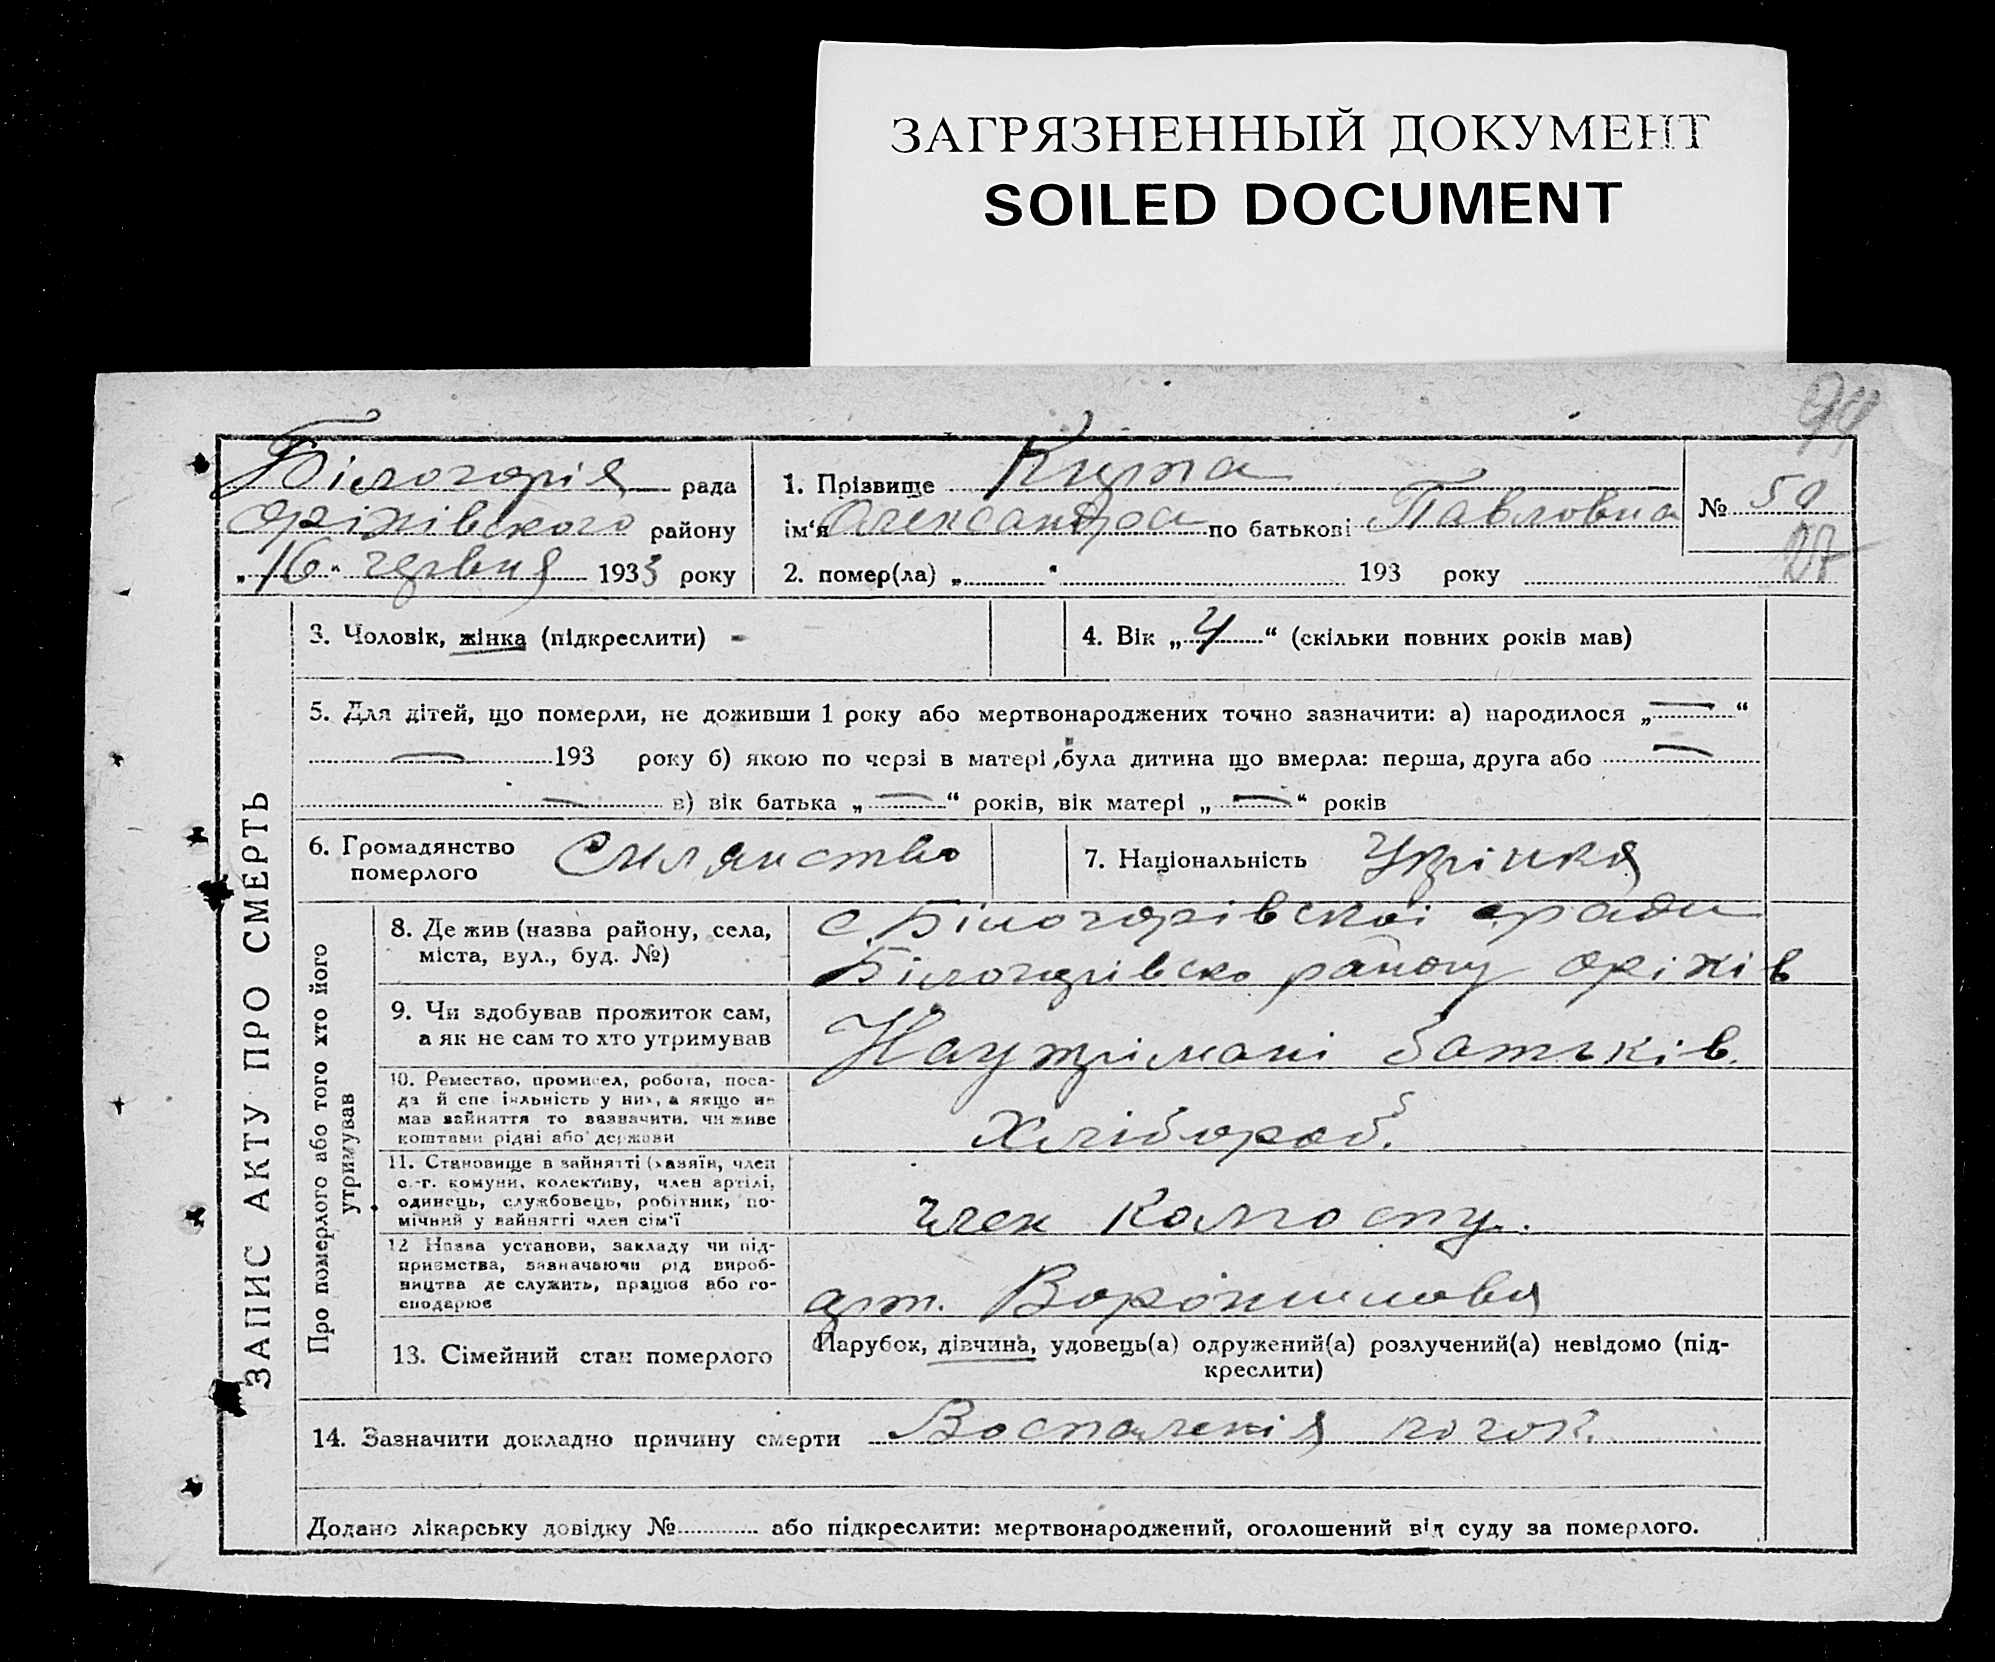 ЗАГРЯЗНЕННЫЙ ДОКУМЕНТ
SOILED DOCUMENT
94
Білогорія рада
оріхівского району
„16“ червня 1933 року
1. Прізвище
ім‘я Олександра по батькові Павловна
2. помер(ла) „ “ 193 року
№ 50
27
ЗАПИС АКТУ ПРО СМЕРТЬ
3. Чоловік, жінка (підкреслити) -
4. Вік „4“ (скільки повних років мав)
5. Для дітей, що померли, не доживши 1 року або мертвонароджених точно зазначити: а) народилося „—“
— 193 року б) якою по черзі в матері, була дитина що вмерла: перша, друга або —
— в) вік батька „—“ років, вік матері „—“ років
6. Громадянство
померлого
Силянство
7. Національність Укрінка
Про померлого або того хто його
утримував
8. Де жив (назва району, села,
міста, вул., буд. №)
с. Білогорівскоі ради
Білогорівско району оріхів
9. Чи здобував прожиток сам,
а як не сам то хто утримував
Наутрімані батьків.
10. Ремество, промисел, робота, поса-
да й спеціяльність у них, а якщо не
мав зайняття то зазначити, чи живе
коштами рідні або держави
Хлібороб.
11. Становище в зайнятті (хазяїн, член
с.-г. комуни, колективу, член артілі,
одинець, службовець, робітник, по-
мічний у зайнятті член сім‘ї
член Колгоспу.
12 Назва установи, закладу чи під-
приємства, зазначаючи рід вироб-
ництва де служить, працює або го-
сподарює
арт. Ворошилова
13. Сімейний стан померлого
Парубок, дівчина, удовець(а) одружений(а) розлучений(а) невідомо (під-
креслити)
14. Зазначити докладно причину смерти Воспаленія почок.
Додано лікарську довідку № або підкреслити: мертвонароджений, оголошений від суду за померлого.